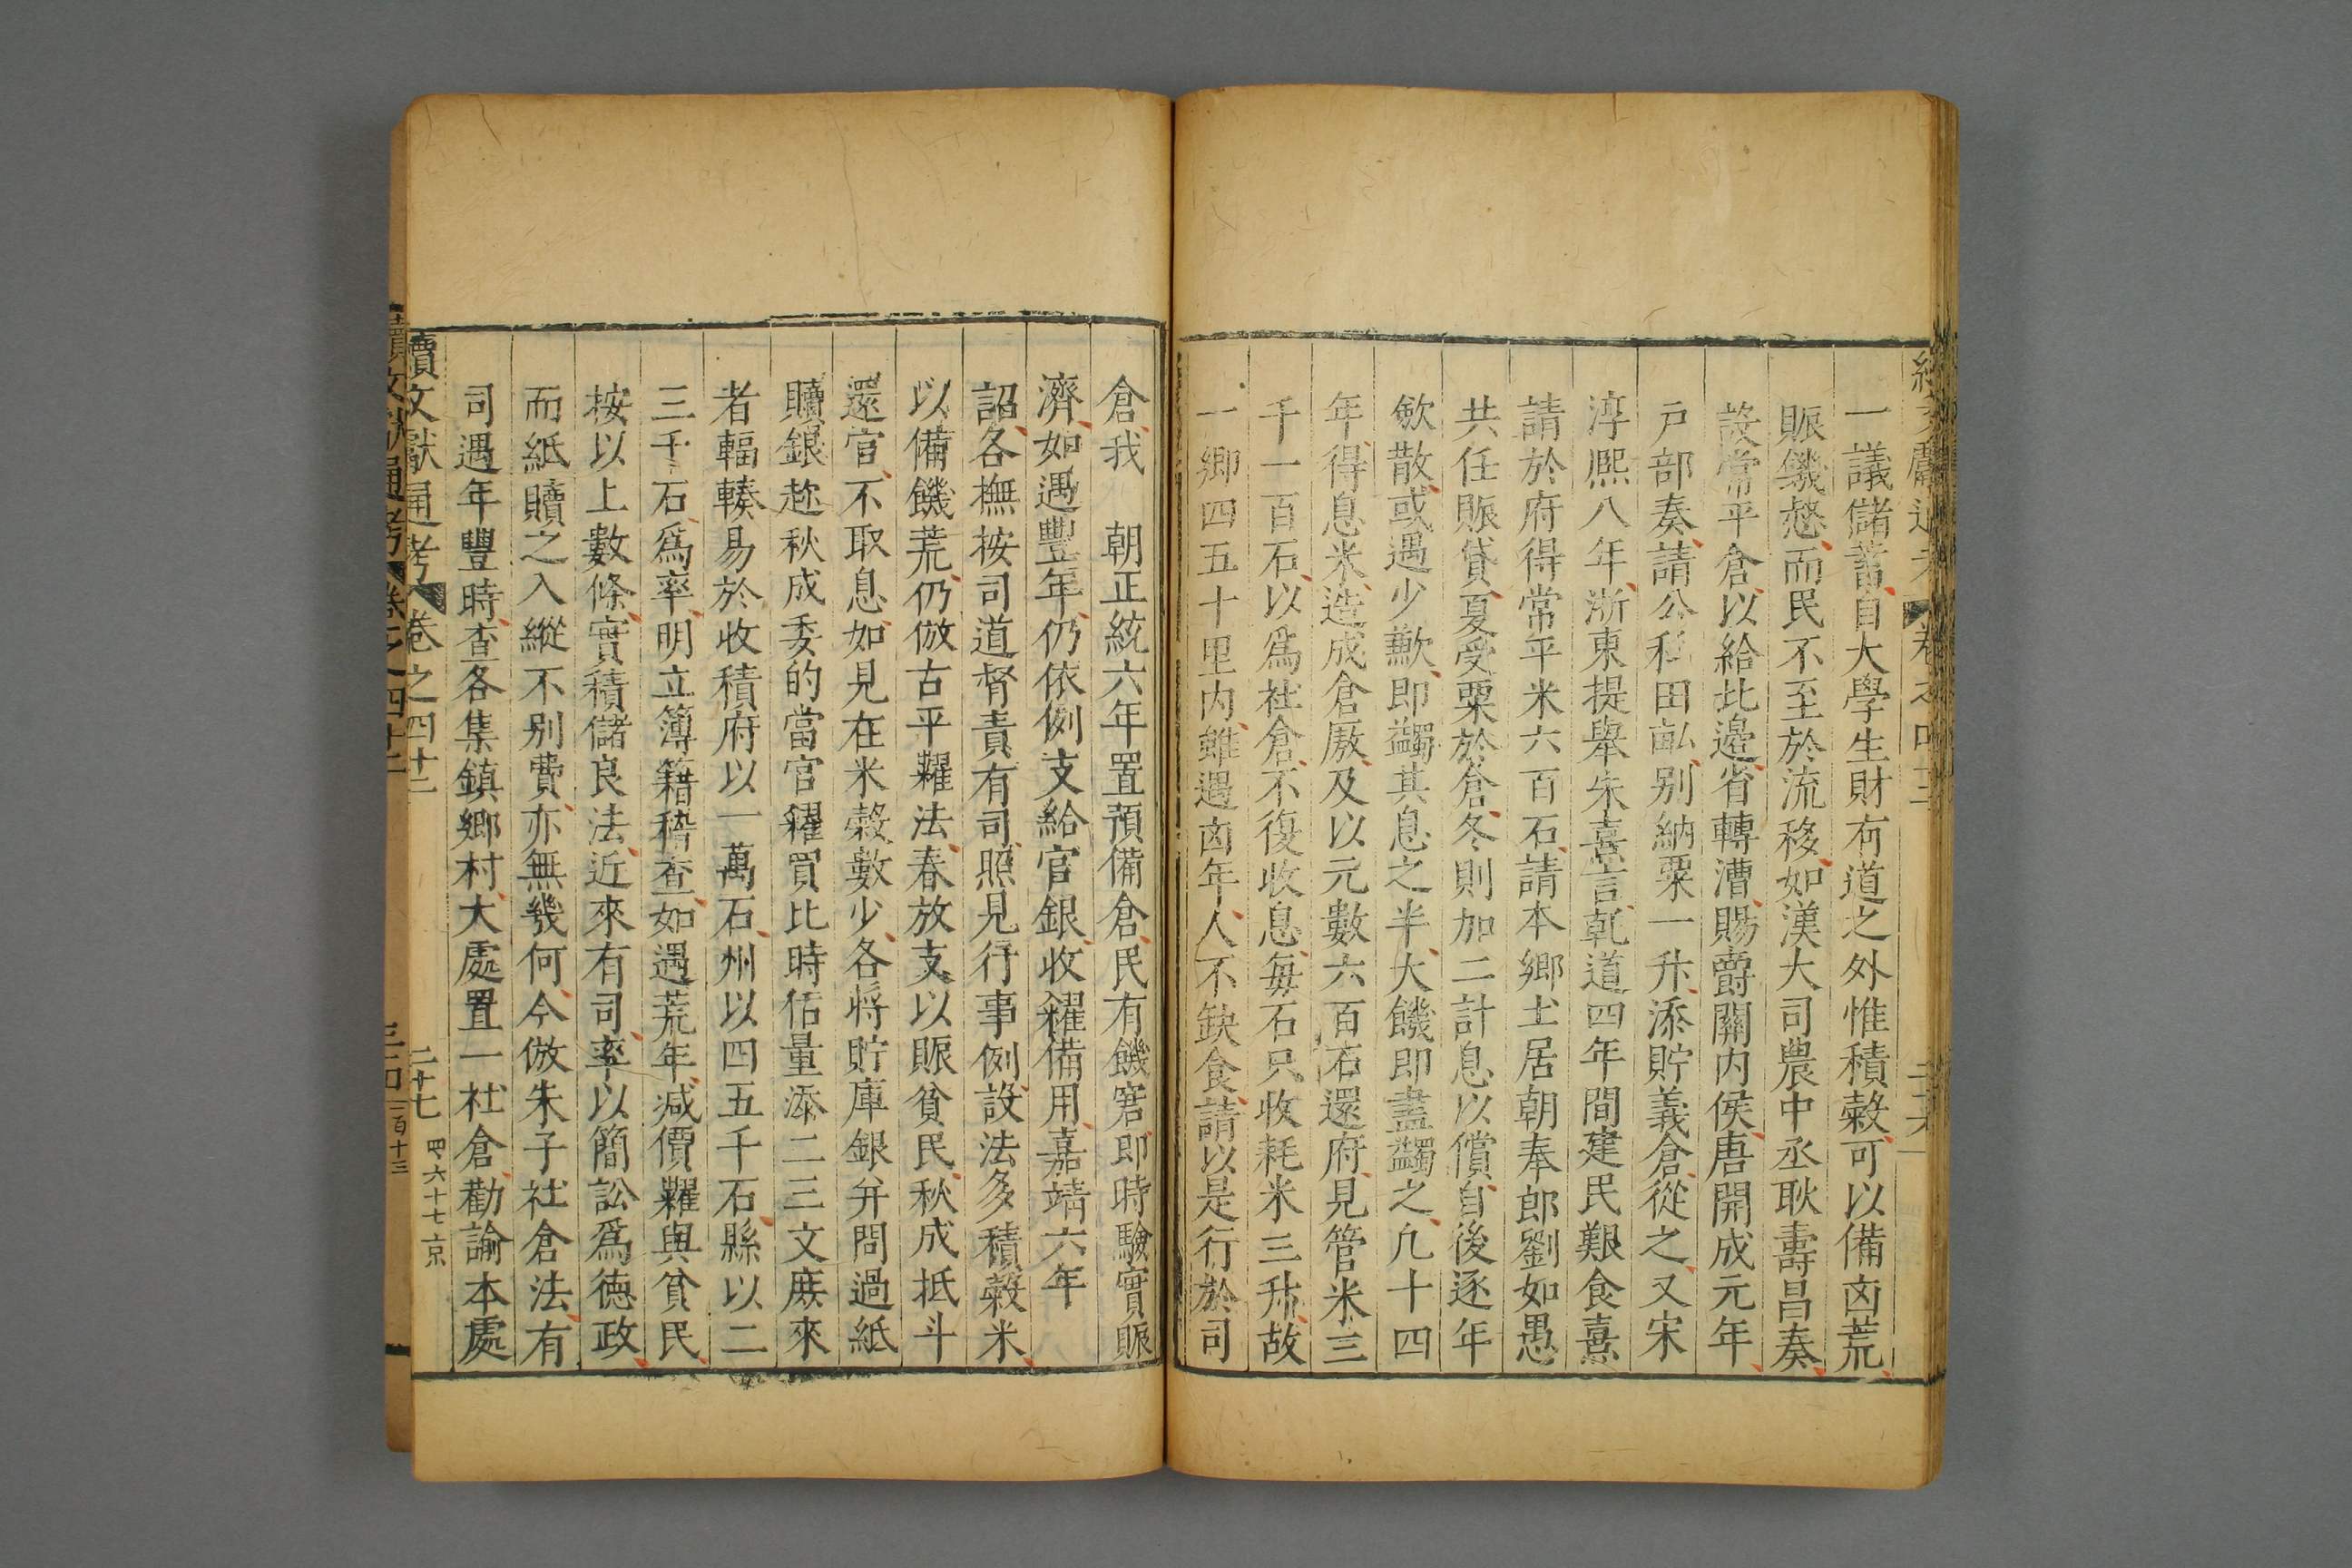 一議儲蓄自大學生財有道之外惟積穀可以備凶荒
賑饑愁而民不至於流移如漢大司農中丞耿壽昌奏
設常平倉以給北邉省轉漕賜爵關内侯唐開成元年
戸部奏請公私田畆别納粟一升添貯義倉從之又宋
淳熈八年浙東提舉朱熹言乾道四年間建民艱食熹
請於府得常平米六百石請本鄉土居朝奉郎劉如愚
共任賑貸夏受粟於倉冬則加二計息以償自後逐年
斂散或遇少歉即蠲其息之半大饑即盡蠲之凢十四
年得息米造成倉厫及以元數六百石還府見管米三
千一百石以爲社倉不復收息每石只收耗米三升故
一鄉四五十里内雖遇凶年人不缺食請以是行於司
倉我 朝正統六年置預備倉民有饑窘即時驗實賑
濟如遇豐年仍依例支給官銀收糴備用嘉靖六年
詔各撫按司道督責有司照見行事例設法多積穀米
以備饑荒仍倣古平糶法春放支以賑貧民秋成抵斗
還官不取息如見在米穀數少各將貯庫銀并問過紙
贖銀趂秋成委的當官糴買比時估量添二三文庶來
者輻輳易於收積府以一萬石州以四五千石縣以二
三千石爲率明立簿籍稽查如遇荒年减價糶與貧民
按以上數條實積儲良法近來有司率以簡訟爲徳政
而紙贖之入縱不别費亦無幾何今倣朱子社倉法有
司遇年豐時查各集鎮鄉村大處置一社倉勸諭本處
續文獻通考 卷之四十二 二十七 四六十七 京